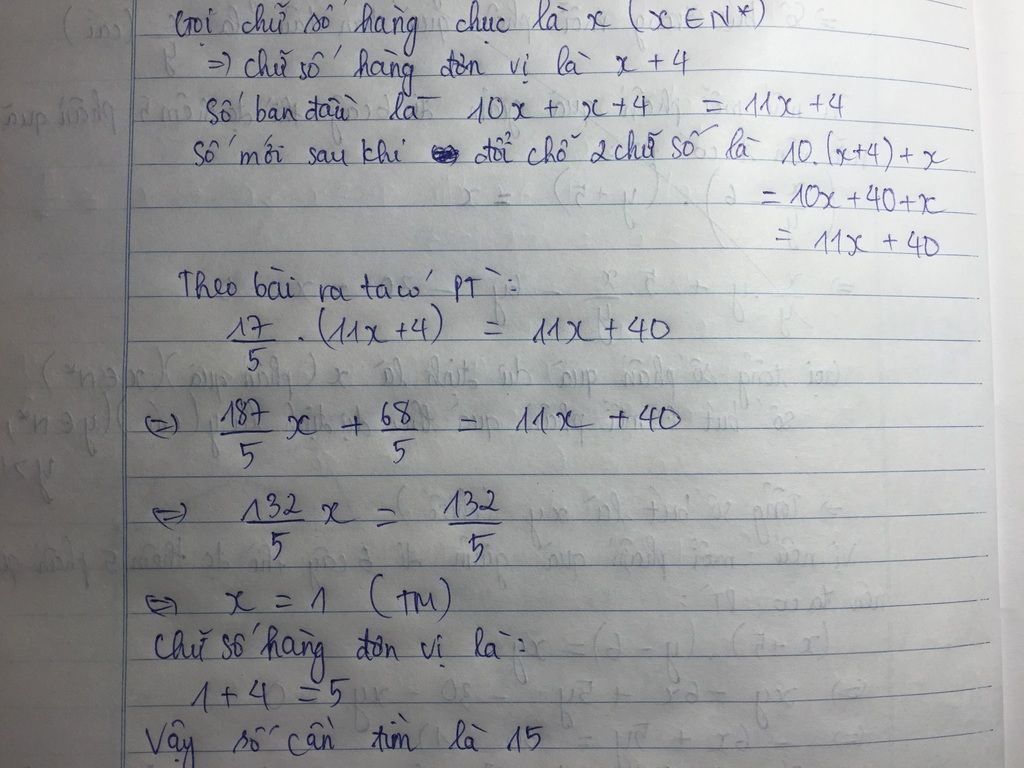 Gọi chữ số hàng chục là x (x ∈ N*)
=> chữ số hàng đơn vị là x + 4
Số ban đầu là 10x + x + 4 = 11x + 4
Số mới sau khi đổi chỗ 2 chữ số là 10.(x+4) + x
= 10x + 40 + x
= 11x + 40
Theo bài ra ta có PT:
17/5 . (11x + 4) = 11x + 40
<=> 187/5 x + 68/5 = 11x + 40
<=> 132/5 x = 132/5
<=> x = 1 (TM)
Chữ số hàng đơn vị là:
1 + 4 = 5
Vậy số cần tìm là 15